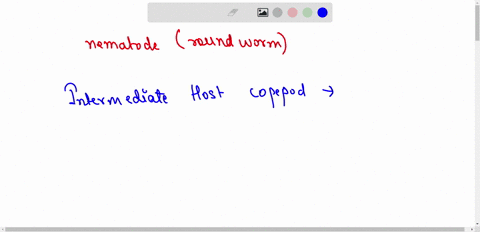 nematode (round worm)
Intermediate Host copepod →